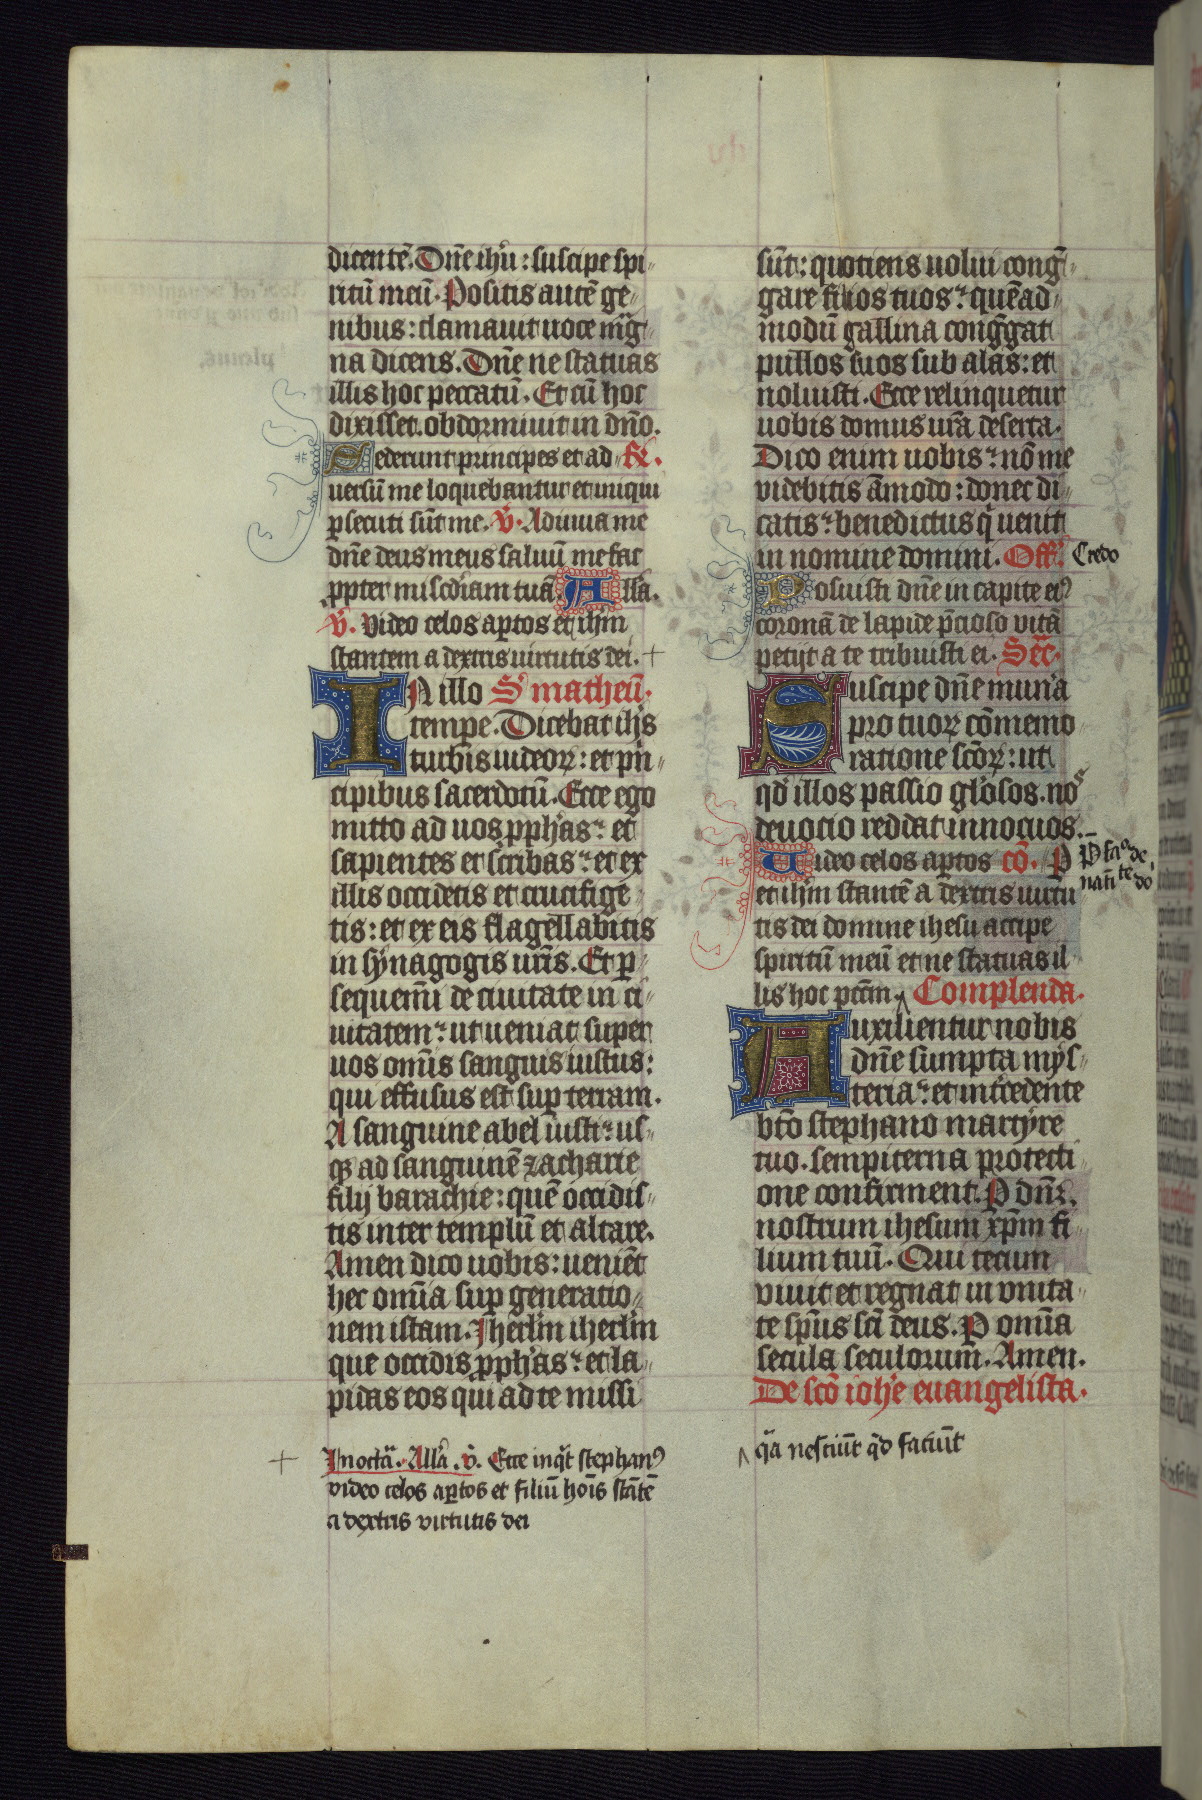 dicentē. Dn̄e ihū : suscipe spi
ritū meū. Positis autē ge
nibus : clamauit uoce mag
na dicens. Dn̄e ne statuas
illis hoc peccatū. Et cū hoc
dixisset. obdormiuit in dn̄o.
Sederunt principes et ad
uersū me loquebantur et iniqui
ꝑsecuti sūt me. V̄. Adiuua me
dn̄e deus meus saluū me fac
ꝓpter mīscdiam tuā. Alła.
V̄. Video celos aꝑtos et ihm̄
stantem a dextris uirtutis dei. +
IN illo S' matheū.
tempe. Dicebat ihs
turbis iudeoꝝ : et pn
cipibus sacerdotū. Ecce ego
mitto ad uos ꝓphas : et
sapientes et scribas : et ex
illis occidetis et crucifige
tis : et ex eis flagellabitis
in synagogis ur̄is. Et ꝑ
sequemī de ciuitate in ci
uitatem : ut ueniat super
uos omīs sanguis iustus :
qui effusus est suꝑ terram.
A sanguine abel iusti : us
qꝫ ad sanguinē zacharie
filij barachie : quē occidis
tis inter templū et altare.
Amen dico uobis : ueniēt
hec omīa suꝑ generatio
nem istam. Iherlm̄ iherlm̄
que occidis ꝓphas : et la
pidas eos qui ad te missi
+ In octā. Allā. v̄. Ecce inqt stephanꝰ
video celos aꝑtos et filiū hoīs stātē
a dextris virtutis dei
sūt : quotiens uolui cong
gare filios tuos : quēad
modū gallina conggat
pullos suos sub alas : et
noluisti. Ecce relinquetur
uobis domus ur̄a deserta.
Dico enim uobis : nō me
videbitis āmodo : donec di
catis : benedictus q̄ uenit
in nomine domini. Off. Credo
Posuisti dn̄e in capite eiꝰ
coronā de lapide p̄cioso vitā
petijt a te tribuisti ei. Secr̄.
Suscipe dn̄e munā
pro tuoꝝ cōmemo
ratione scōꝝ : ut
qd illos passio glosos. nos
deuocio reddat innocuos.
Video celos aꝑtos cō. P
et ihm̄ stantē a dextris uirtu
tis dei domine ihesu accipe
spiritū meū et ne statuas il
lis hoc pctm̄. Complenda.
Auxilientur nobis
dn̄e sumpta mys
teria : et intcedente
bt̄o stephano martyre
tuo. sempiterna protecti
one confirment. P dn̄m
nostrum ihesum xp̄m fi
lium tuū. Qui tecum
viuit et regnat in vnita
te sp̄us sc̄i deus. P omīa
secula seculorum. Amen.
De scō ioh̄e euangelista.
qā nesciūt qd faciūt